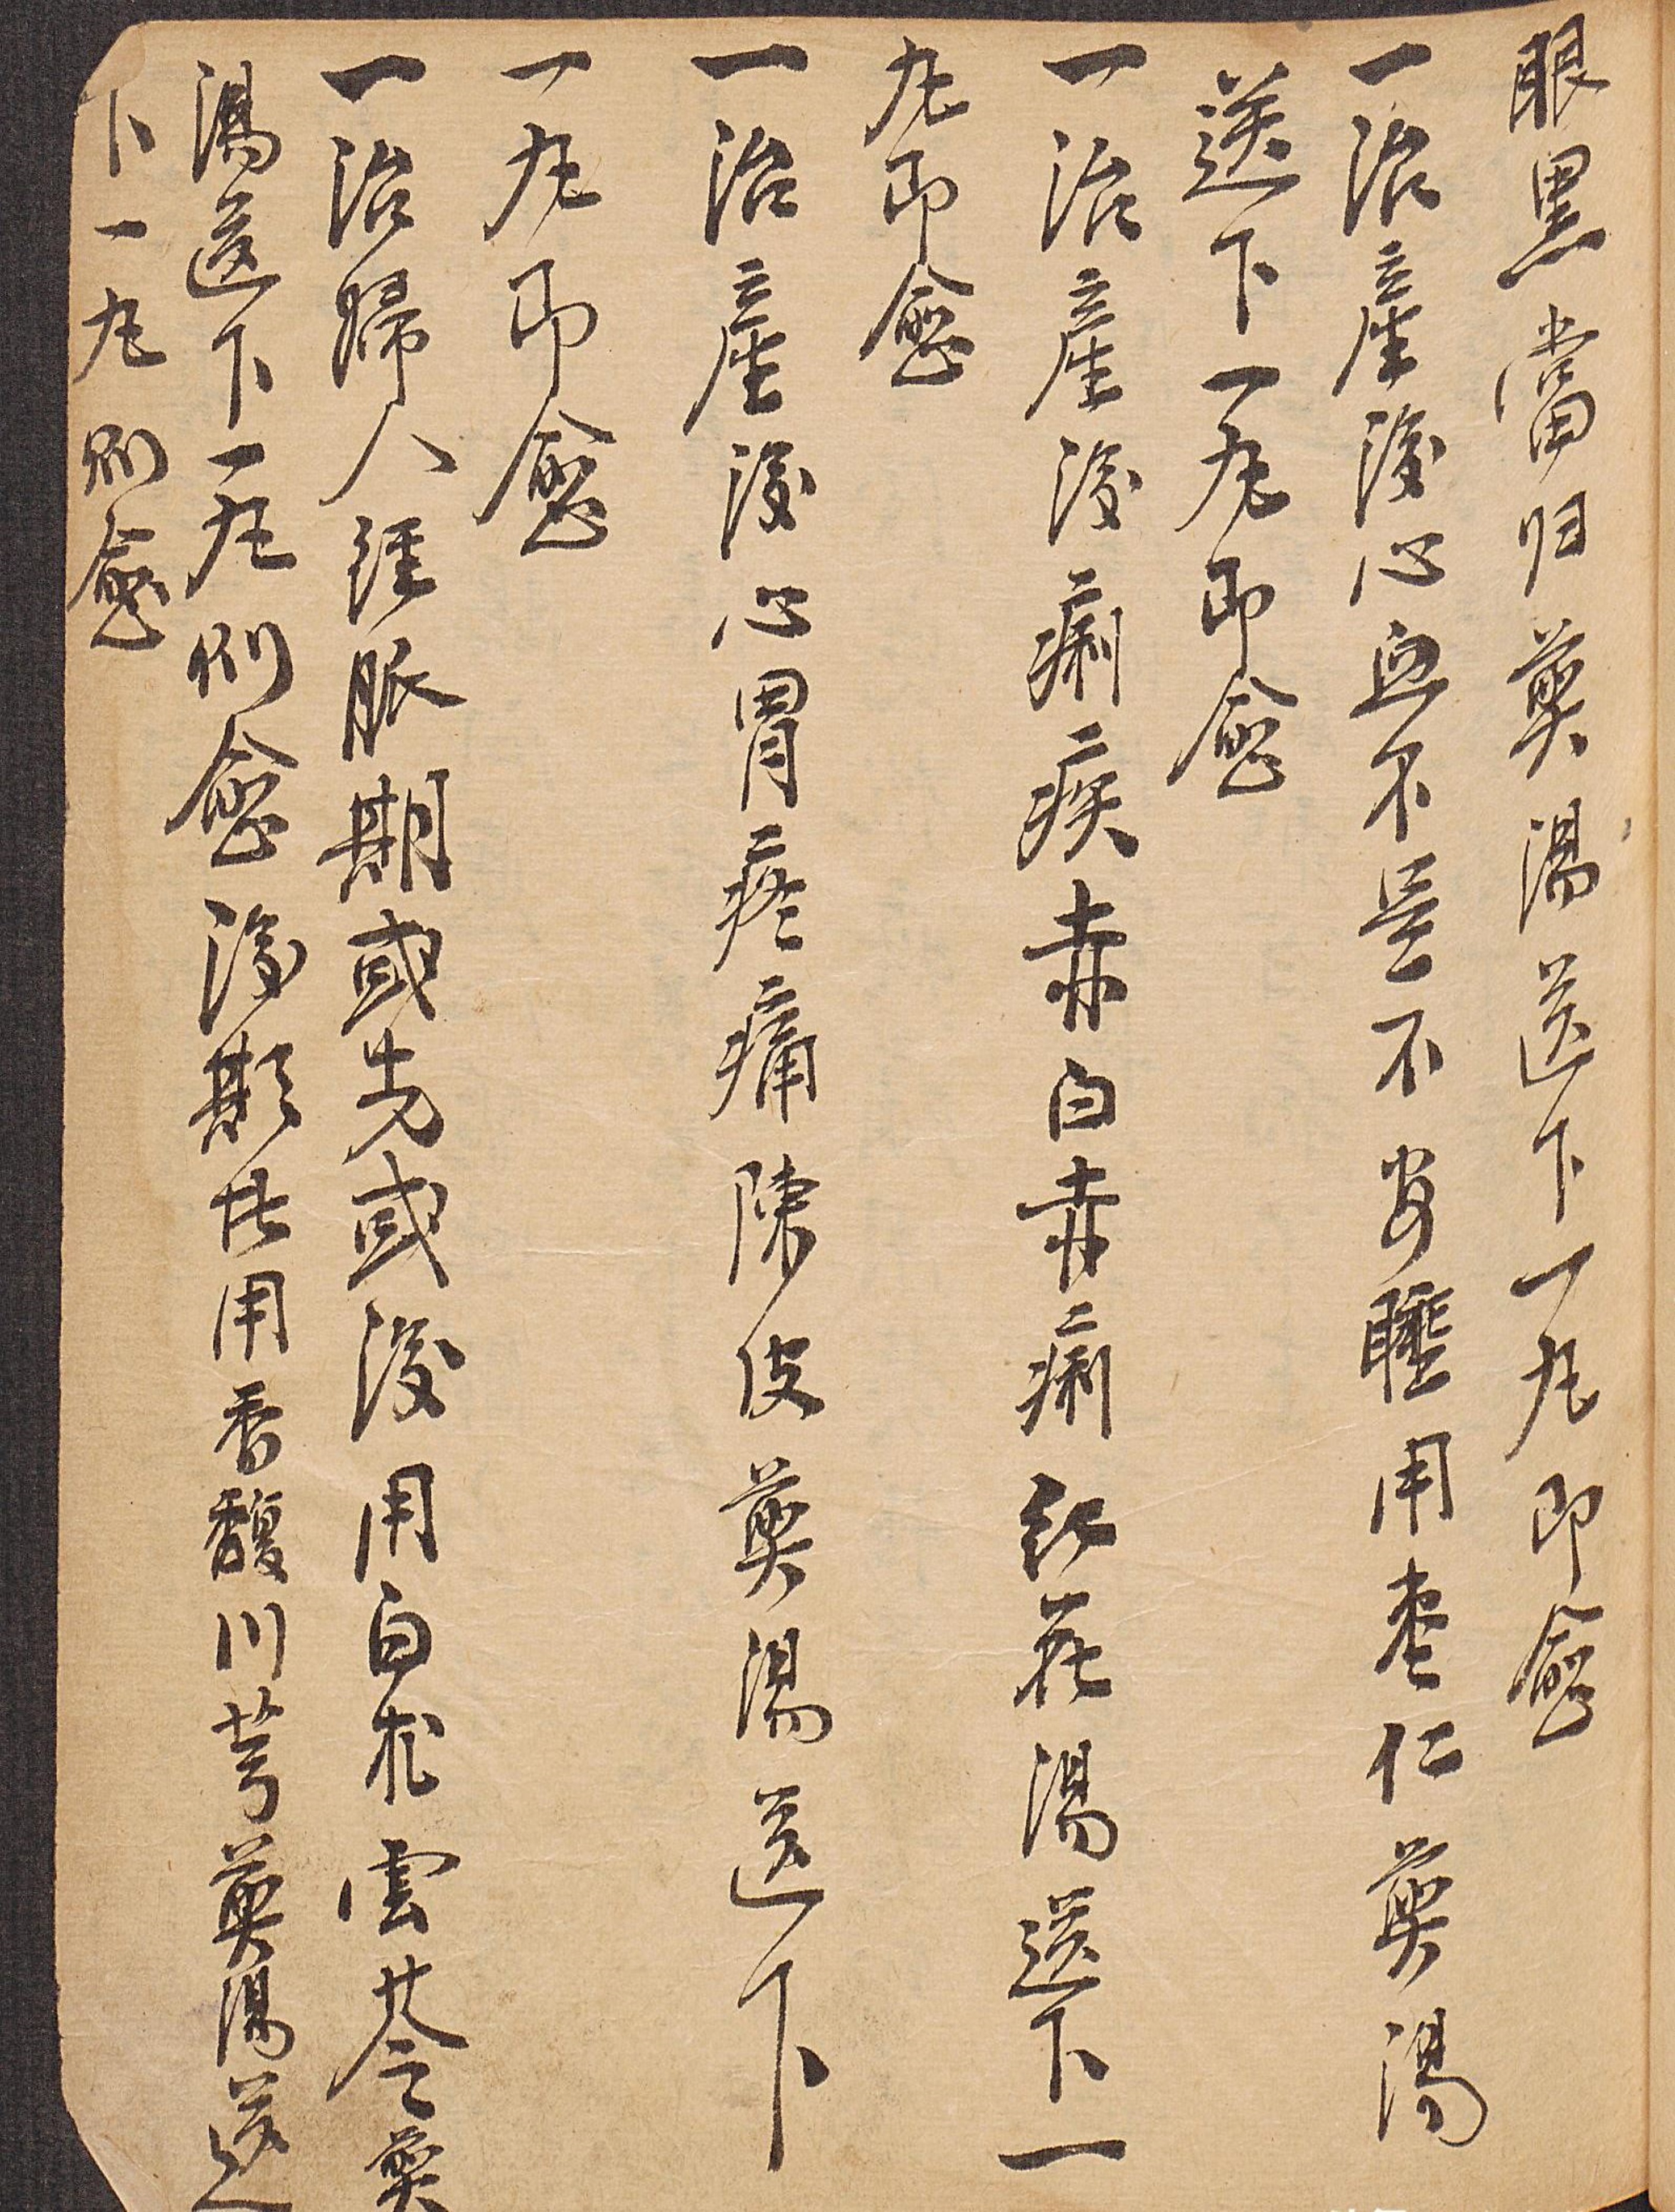 眼黑當归煎湯送下一丸即愈
一治產後心血不足不安睡用枣仁煎湯
送下一丸即愈
一治產後痢疾赤白赤痢紅花湯送下一
丸即愈
一治產後心胃疼痛陳皮煎湯送下
一丸即愈
一治婦人經脈期或先或後用白朮雲苓煎
湯送下一丸則愈後期者用香馥川芎煎湯送
下一丸則愈